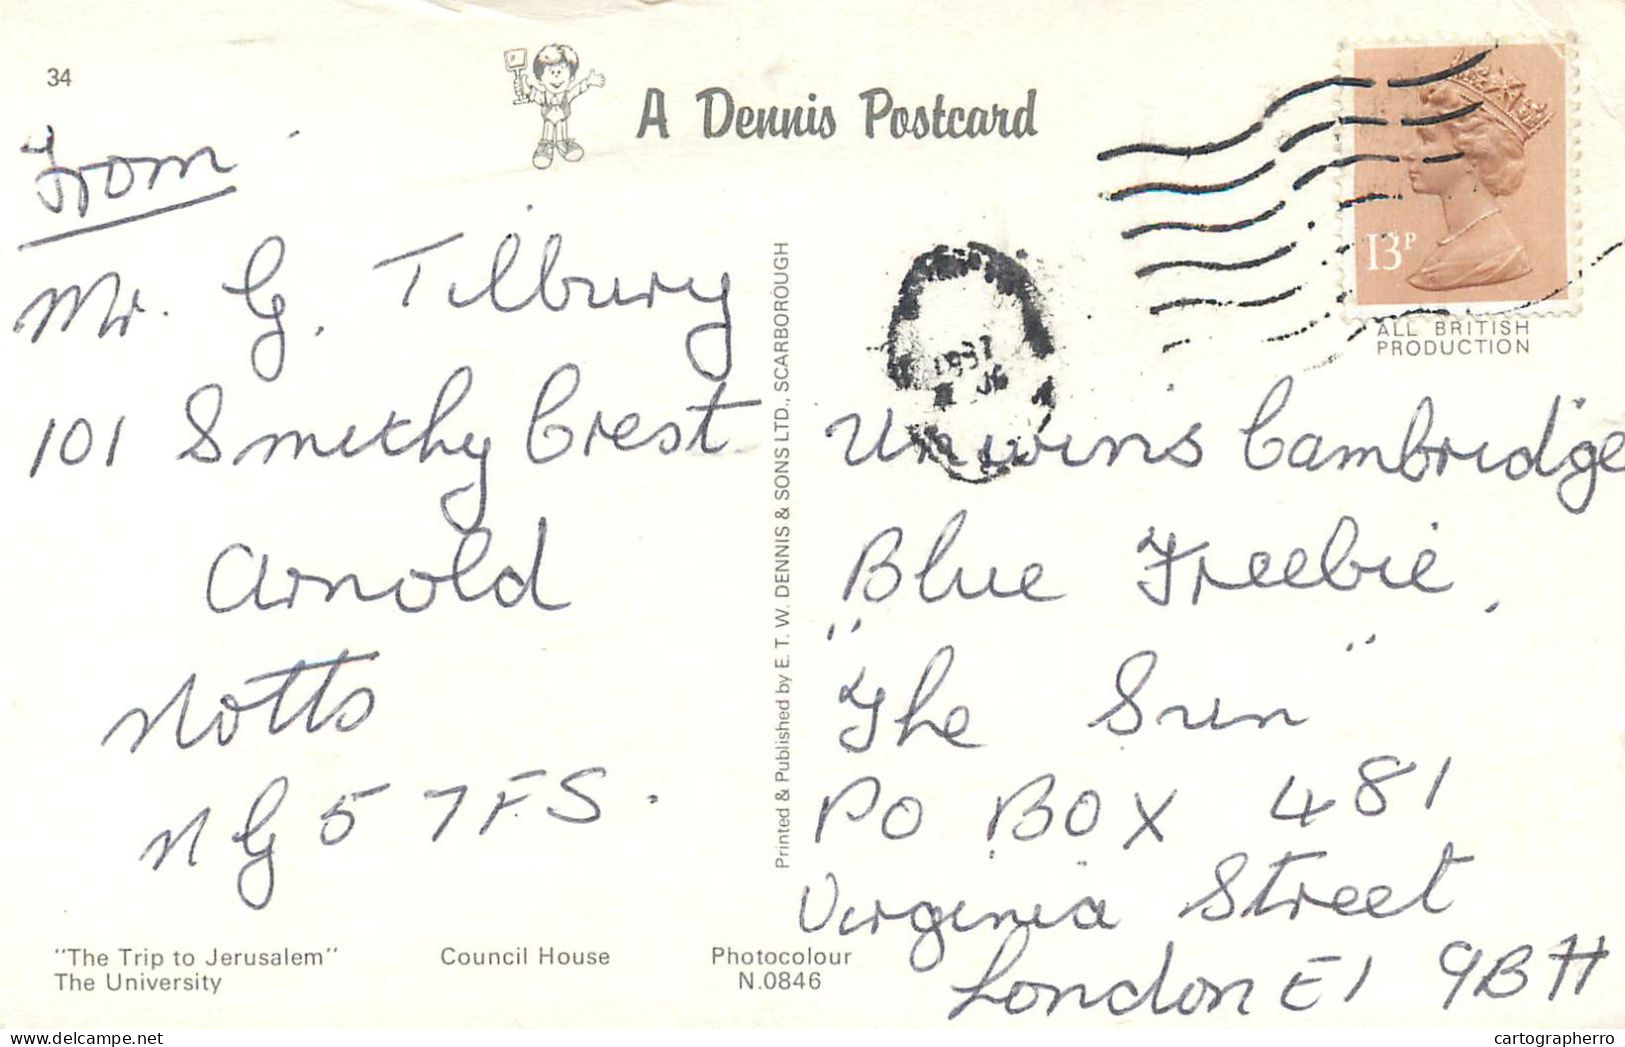 34
A Dennis Postcard
13P
ALL BRITISH
PRODUCTION
From
Mr. G. Tilbury
101 Smithy Crest
Arnold
Notts
NG5 7FS.
Printed & Published by E. T. W. DENNIS & SONS LTD., SCARBOROUGH
1987
Unwins Cambridge
Blue Freebie,
"The Sun"
PO BOX 481
Virginia Street
London E1 9BH
"The Trip to Jerusalem"
The University
Council House
Photocolour
N.0846
delcampe.net
cartographerro